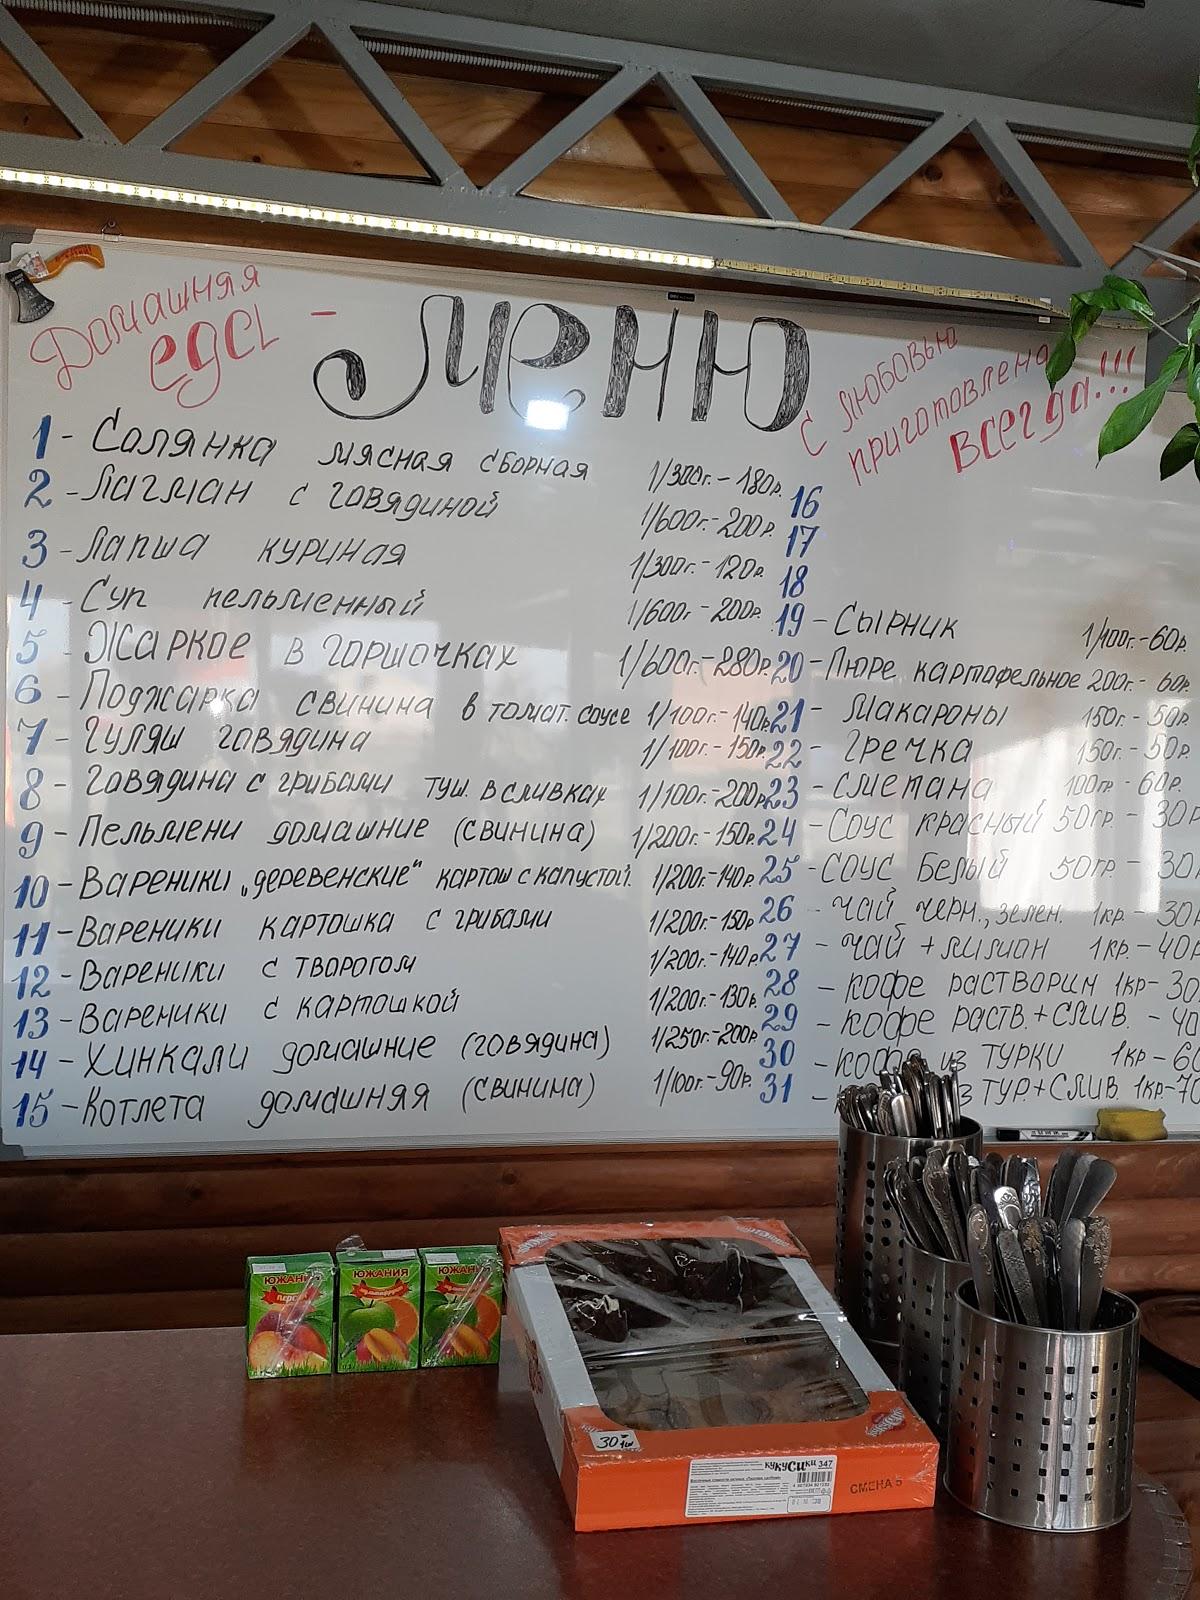 Домашняя
еда -
Меню
с любовью
приготовлена
всегда!!!
1 - Солянка мясная сборная 1/300г. - 180р.
2 - Лагман с говядиной 1/600г. - 200р.
3 - Лапша куриная 1/300г. - 120р.
4 - Суп пельменный 1/600г - 200р.
5 - Жаркое в горшочках 1/600г. - 280р.
6 - Поджарка свинина в томат. соусе 1/100г. - 140р.
7 - Гуляш говядина 1/100г. - 150р.
8 - Говядина с грибами туш. в сливках 1/100г. - 200р.
9 - Пельмени домашние (свинина) 1/200г. - 150р.
10 - Вареники „деревенские“ картош с капустой. 1/200г. - 140р.
11 - Вареники картошка с грибами 1/200г. - 150р
12 - Вареники с творогом 1/200г. - 140р.
13 - Вареники с картошкой 1/200г. - 130р.
14 - Хинкали домашние (говядина) 1/250г. - 200р
15 - Котлета домашняя (свинина) 1/100г. - 90р.
16
17
18
19 - Сырник 1/100г. - 60р.
20 - Пюре картофельное 200г. - 60р.
21 - Макароны 150г. - 50р.
22 - Гречка 150г - 50р.
23 - Сметана 100гр - 60р.
24 - Соус красный 50гр. - 30р
25 - Соус белый 50гр. - 30
26 - чай черн., зелен. 1кр. - 30
27 - чай + лимиан 1кр. - 40р
28 - кофе растворим 1кр - 30
29 - кофе раств. + слив. - 40
30 - кофе из турки 1кр - 60
31 - из тур. + слив. 1кр. - 70
ЮЖАНИ
ЮЖАНИЯ
мультифрукт
ЮЖАНИЯ
30 1ш
КУКУСИКИ 347
СМЕНА 5